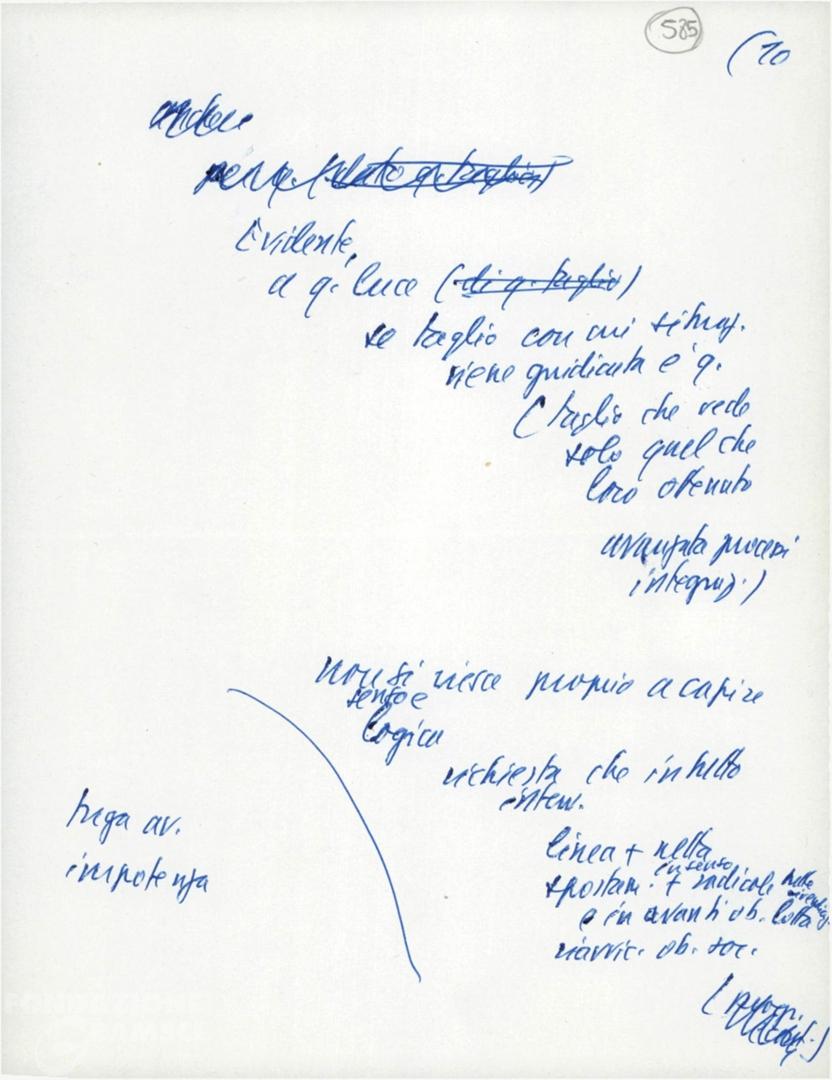 585
(10
Evidente,
a q. luce (di q. taglio)
se taglio con cui situaz.
viene giudicata è q.
(taglio che vede
solo quel che
loro ottenuto
avanzata processi
integraz.)
non si riesce proprio a capire
senso e
logica
richiesta che in tutto
interv.
linea + netta
in senso
spostam. + radicale nelle
e in avanti ob. lotta
riavvic. ob. soc.
fuga av.
impotenza